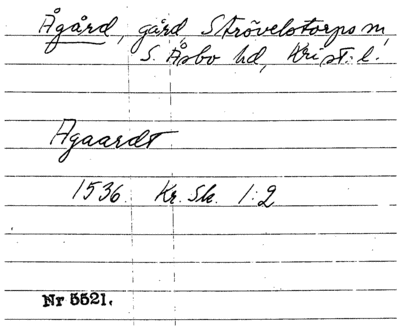 Ågård, gård, Strövelstorps sn,
S. Åsbo hd, Krist. l.
Agaardt
1536. Kr. Sk. 1:2
Nr 5521.